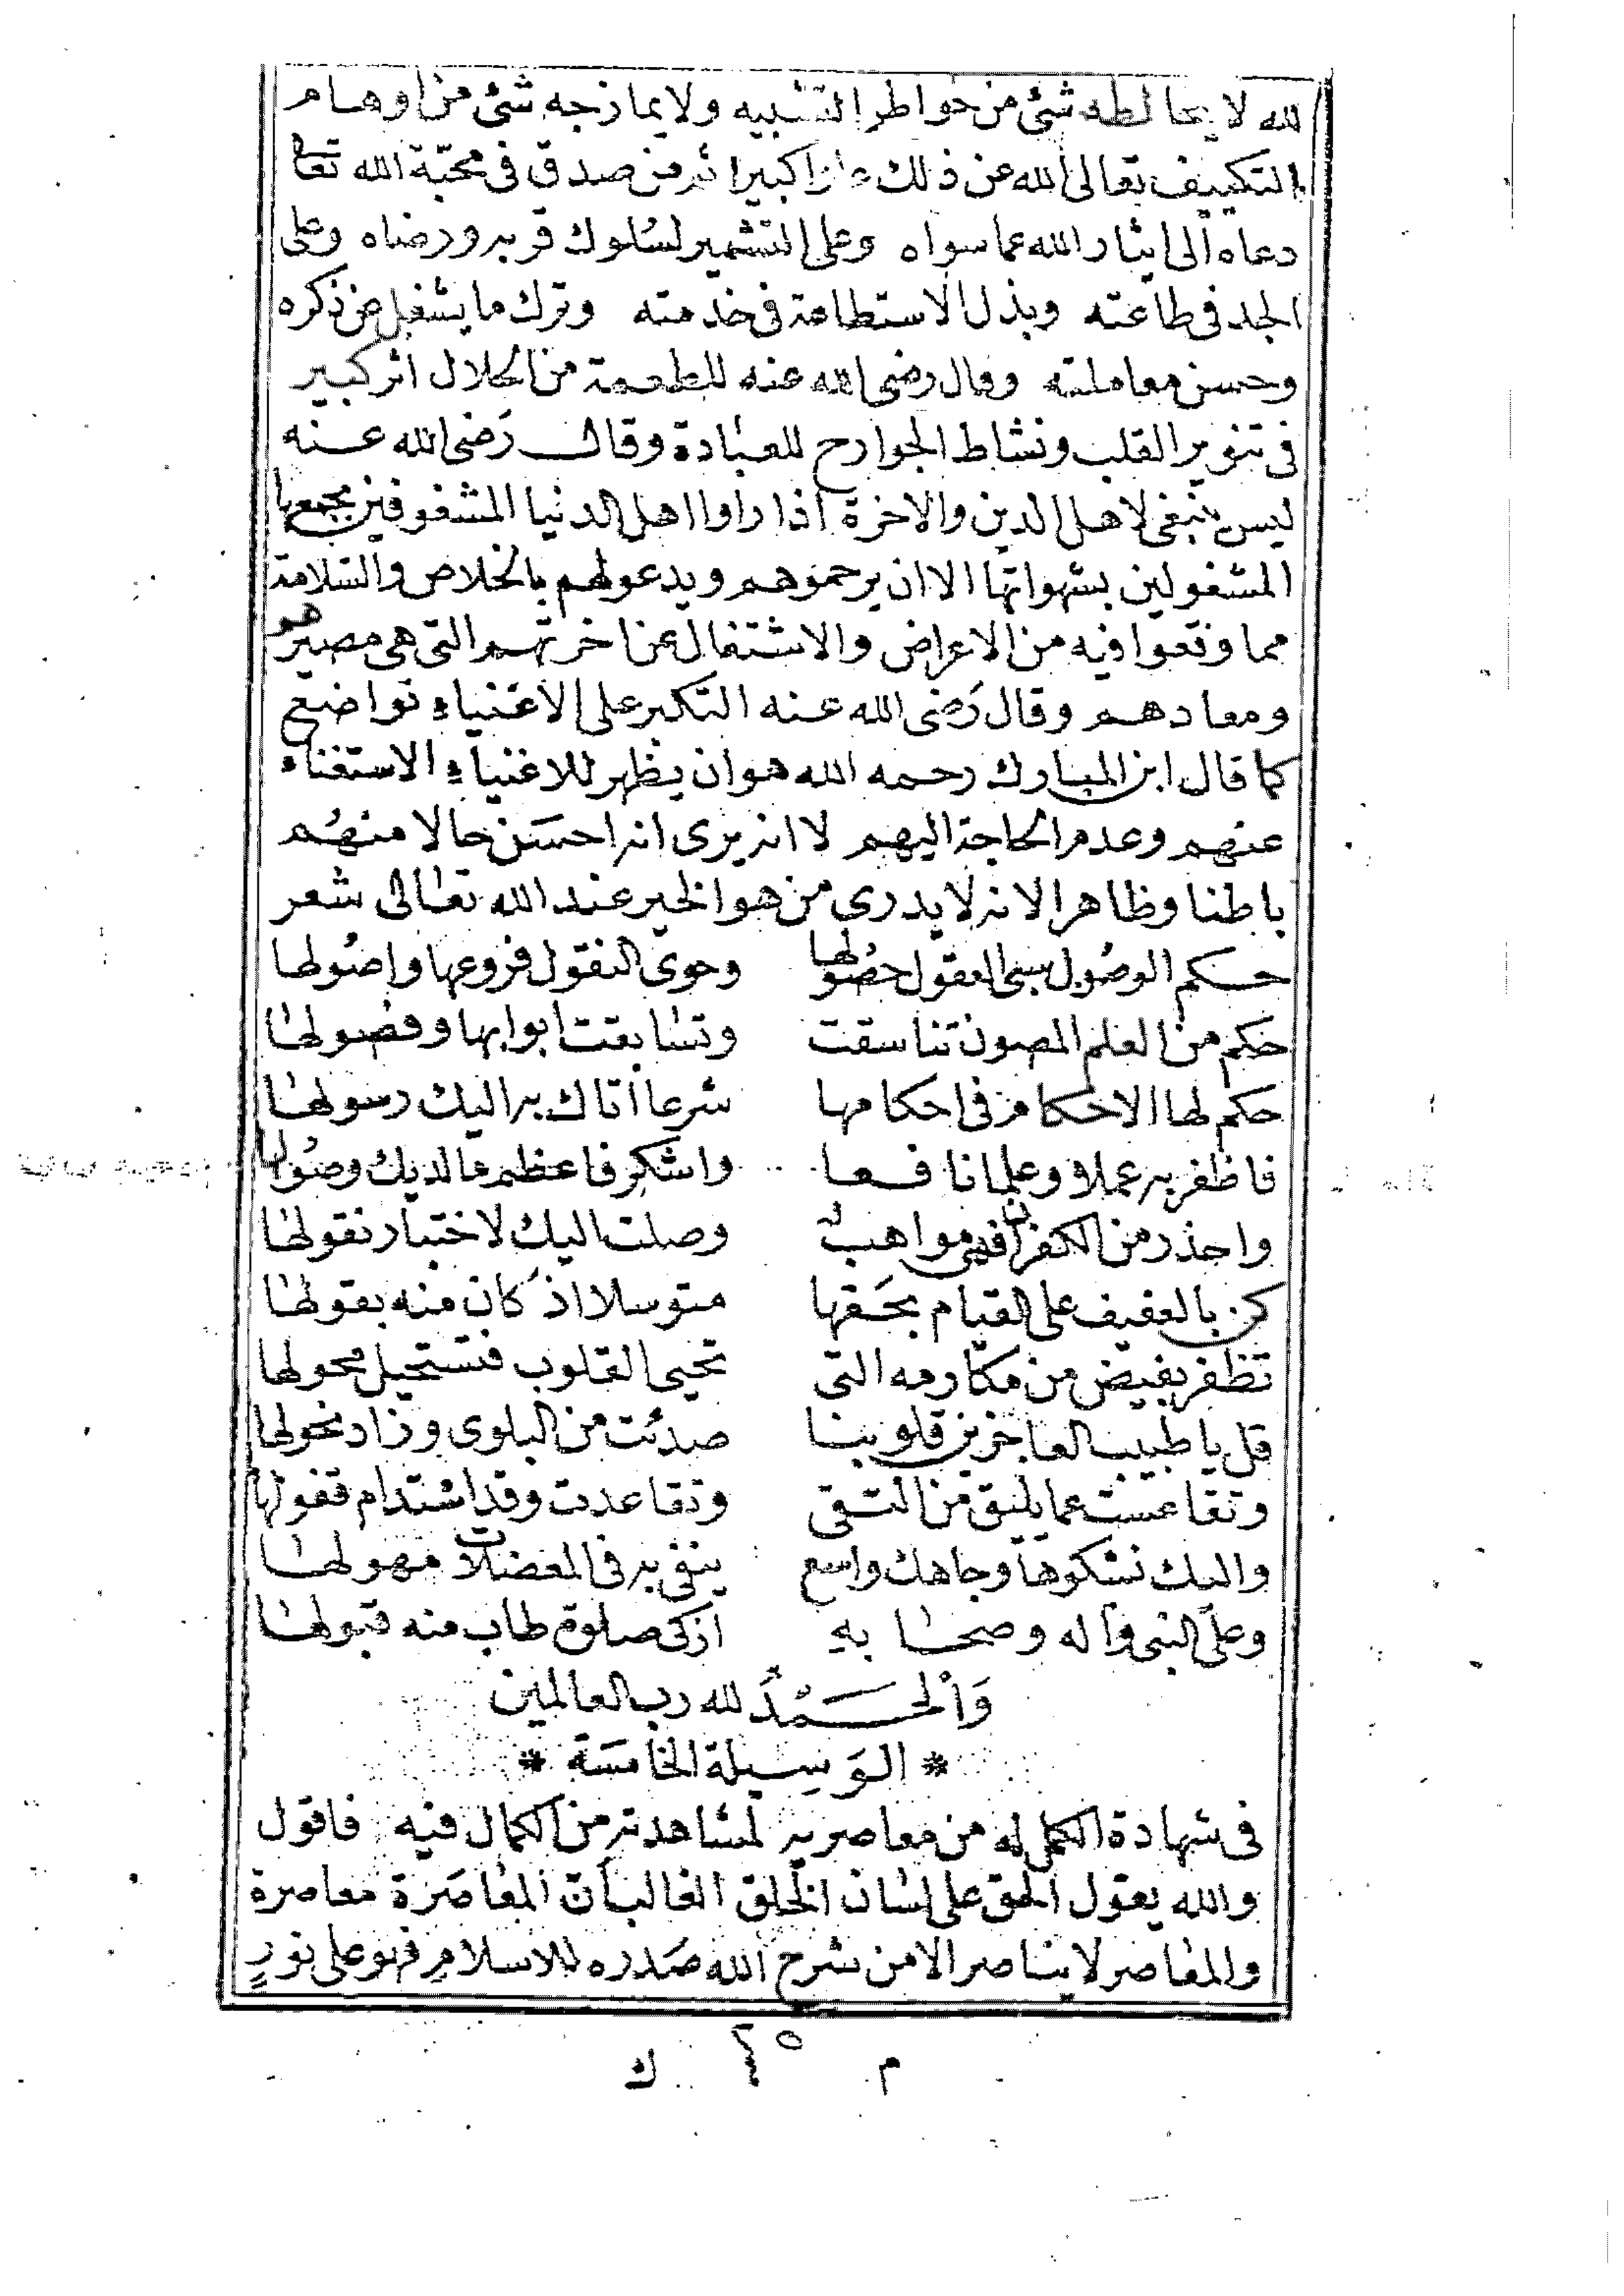 لله لا يخالطه شئ من خواطر التشبيه ولا يمازجه شئ من اوهام
التكييف تعالى الله عن ذلك كبيرا ثم من صدق فى محبّة الله تعالى
دعاه الى ايثار الله عما سواه وعلى التشمير لسُلوك قربه ورضاه وعلى
الجد فى طاعته وبذل الاستطاعة فى خدمته وترك ما يشغل عن ذكره
وحسن معاملته وقال رضى الله عنه للطعمة من الحلال اثر كبير
فى تنوير القلب ونشاط الجوارح للعبادة وقال رَضى الله عنه
ليس ينبغى لاهل الدين والاخرة اذا راوا اهل الدنيا المشغوفين بجمعها
المشغولين بشهواتها الا ان يرحموهم ويدعوا لهم بالخلاص والسّلامة
مما وقعوا فيه من الاعراض والاشتغال عن اخرتهم التى هى مصيرهم
ومعادهم وقال رَضى الله عنه التكبر على الاغنياء تواضع
كما قال ابن المبارك رحمه الله هو ان يظهر للاغنياء الاستغناء
عنهم وعدم الحاجة اليهم لا انه يرى انه احسَن حالا منهُم
باطنا وظاهرا لانه لا يدرى من هو الخير عند الله تعالى شعر
حكم الوصُول سبى العقول حصُولها وحوى النقول فروعها واصُولها
حكم من العلم المصون تناسقت وتسابقت ابوابها وفصولها
حكم لها الاحكام فى احكامها شرعا اتاك به اليك رسولها
فاظفر به عملا وعلما نافعا واشكر فاعظم ما لديك وصُولها
واحذر من الكفران فهى مواهب وصلت اليك لاختبار نقولها
كن بالعفيف على القيام بحَقها متوسلا اذ كان منه بقولها
تظفر بفيض من مكارمه التى تحيى القلوب فتستحيل محولها
قل يا طبيب العاجزين قلوبنا صدئت من البلوى وزاد نحولها
وتقاعست عما يليق من التقى وتقاعدت وقد استدام قفولها
واليك نشكوها وجاهك واسع ينفى به فى المعضلات مهولها
وعلى النبى وآله وصحابه ازكى صلوة طاب منه قبولها
وَالحَمْدُ لله رب العالمين
* الوَسِيلة الخامسَة *
فى شهادة الكمل له من معاصريه لمشاهدته من الكمال فيه فاقول
والله يقول الحق على لسان الخلق الغالب أن المعاصَرة معاصرة
والمعاصر لا يناصر الا من شرح الله صَدره للاسلامِ فهو على نورٍ
م ٢٥ ك